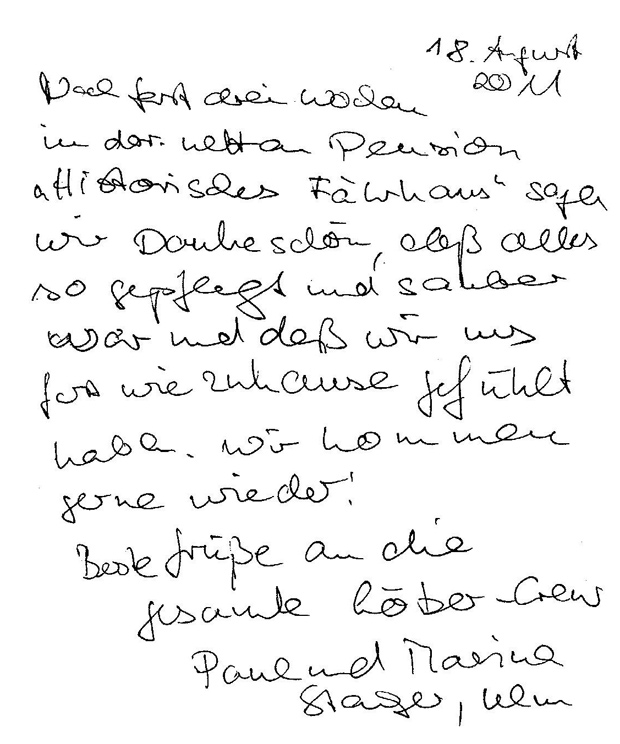 18. August
2011
Nach fast drei Wochen
in der netten Pension
„Historisches Fährhaus“ sagen
wir Dankeschön, daß alles
so gepflegt und sauber
war und daß wir uns
fast wie zuhause gefühlt
haben. Wir kommen
gerne wieder!
Beste Grüße an die
gesamte -Crew
Paul und Marina
Ulm